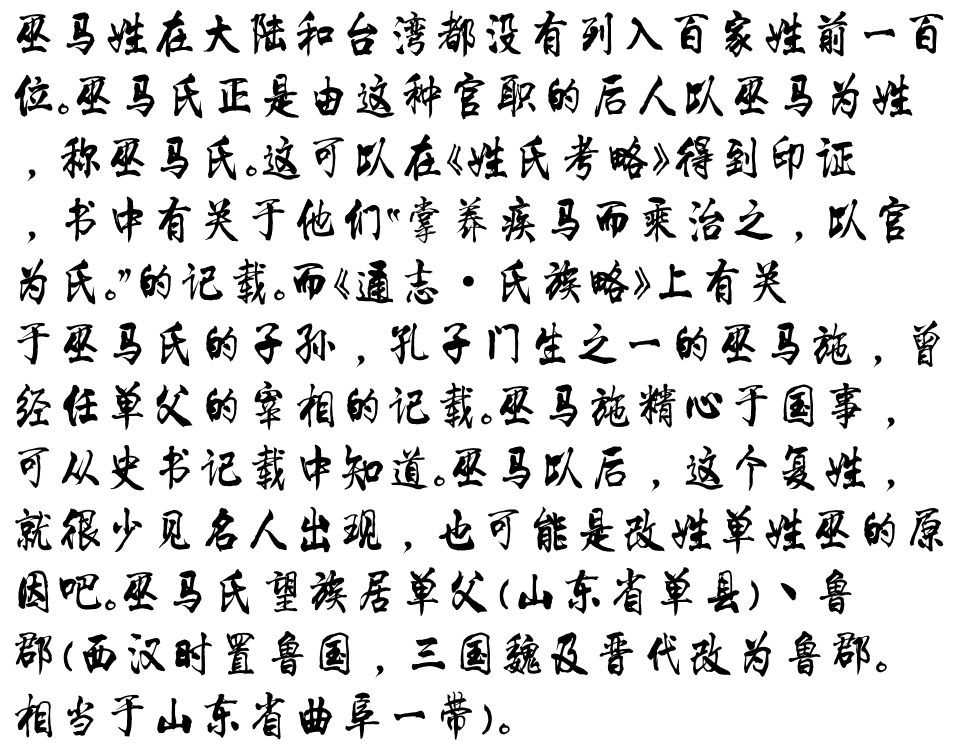 巫马姓在大陆和台湾都没有列入百家姓前一百
位。巫马氏正是由这种官职的后人以巫马为姓
，称巫马氏。这可以在《姓氏考略》得到印证
，书中有关于他们“掌养疾马而乘治之，以官
为氏。”的记载。而《通志·氏族略》上有关
于巫马氏的子孙，孔子门生之一的巫马施，曾
经任单父的宰相的记载。巫马施精心于国事，
可从史书记载中知道。巫马以后，这个复姓，
就很少见名人出现，也可能是改姓单姓巫的原
因吧。巫马氏望族居单父(山东省单县)丶鲁
郡(西汉时置鲁国，三国魏及晋代改为鲁郡。
相当于山东省曲阜一带)。